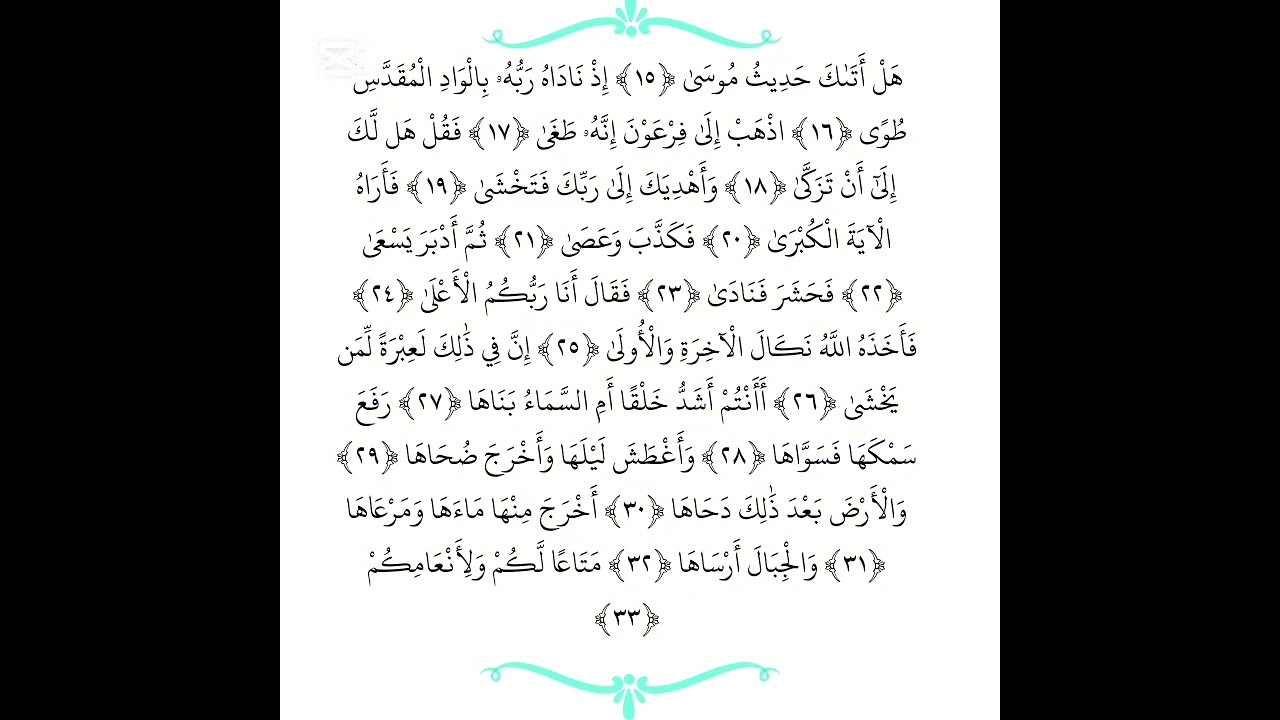 هَلْ أَتَىٰكَ حَدِيثُ مُوسَىٰ ﴿١٥﴾ إِذْ نَادَاهُ رَبُّهُۥ بِالْوَادِ الْمُقَدَّسِ
طُوًى ﴿١٦﴾ اذْهَبْ إِلَىٰ فِرْعَوْنَ إِنَّهُۥ طَغَىٰ ﴿١٧﴾ فَقُلْ هَل لَّكَ
إِلَىٰٓ أَنْ تَزَكَّىٰ ﴿١٨﴾ وَأَهْدِيَكَ إِلَىٰ رَبِّكَ فَتَخْشَىٰ ﴿١٩﴾ فَأَرَاهُ
الْآيَةَ الْكُبْرَىٰ ﴿٢٠﴾ فَكَذَّبَ وَعَصَىٰ ﴿٢١﴾ ثُمَّ أَدْبَرَ يَسْعَىٰ
﴿٢٢﴾ فَحَشَرَ فَنَادَىٰ ﴿٢٣﴾ فَقَالَ أَنَا رَبُّكُمُ الْأَعْلَىٰ ﴿٢٤﴾
فَأَخَذَهُ اللَّهُ نَكَالَ الْآخِرَةِ وَالْأُولَىٰ ﴿٢٥﴾ إِنَّ فِي ذَٰلِكَ لَعِبْرَةً لِّمَن
يَخْشَىٰ ﴿٢٦﴾ أَأَنْتُمْ أَشَدُّ خَلْقًا أَمِ السَّمَاءُ بَنَاهَا ﴿٢٧﴾ رَفَعَ
سَمْكَهَا فَسَوَّاهَا ﴿٢٨﴾ وَأَغْطَشَ لَيْلَهَا وَأَخْرَجَ ضُحَاهَا ﴿٢٩﴾
وَالْأَرْضَ بَعْدَ ذَٰلِكَ دَحَاهَا ﴿٣٠﴾ أَخْرَجَ مِنْهَا مَاءَهَا وَمَرْعَاهَا
﴿٣١﴾ وَالْجِبَالَ أَرْسَاهَا ﴿٣٢﴾ مَتَاعًا لَّكُمْ وَلِأَنْعَامِكُمْ
﴿٣٣﴾